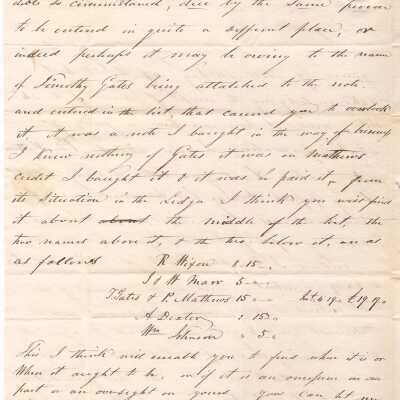 debt so circumstanced, due by the same person
to be entered in quite a different place, or
indeed perhaps it may be owing to the name
of Timothy Gates being attatched to the note.
and entered in the list, that caused you to overlook
it it was a note I bought in the way of business
I knew nothing of Gates it was on Mathews
credit I bought it & it was paid it, from
its situation in the Ledger I think you will find
it about about the middle of the list, the
two names above it, & the two below it, are as
as follows R Wixon 1.15 -
J & W Marr 5 -
T. Gates & P. Mathews 15 Int 4.19 £19.19
A Dexter 15
Wm Johnson 5
This I think will enable you to find where it is or
Where it ought to be, or if it is an omission on our
part or an oversight on yours, you can let me